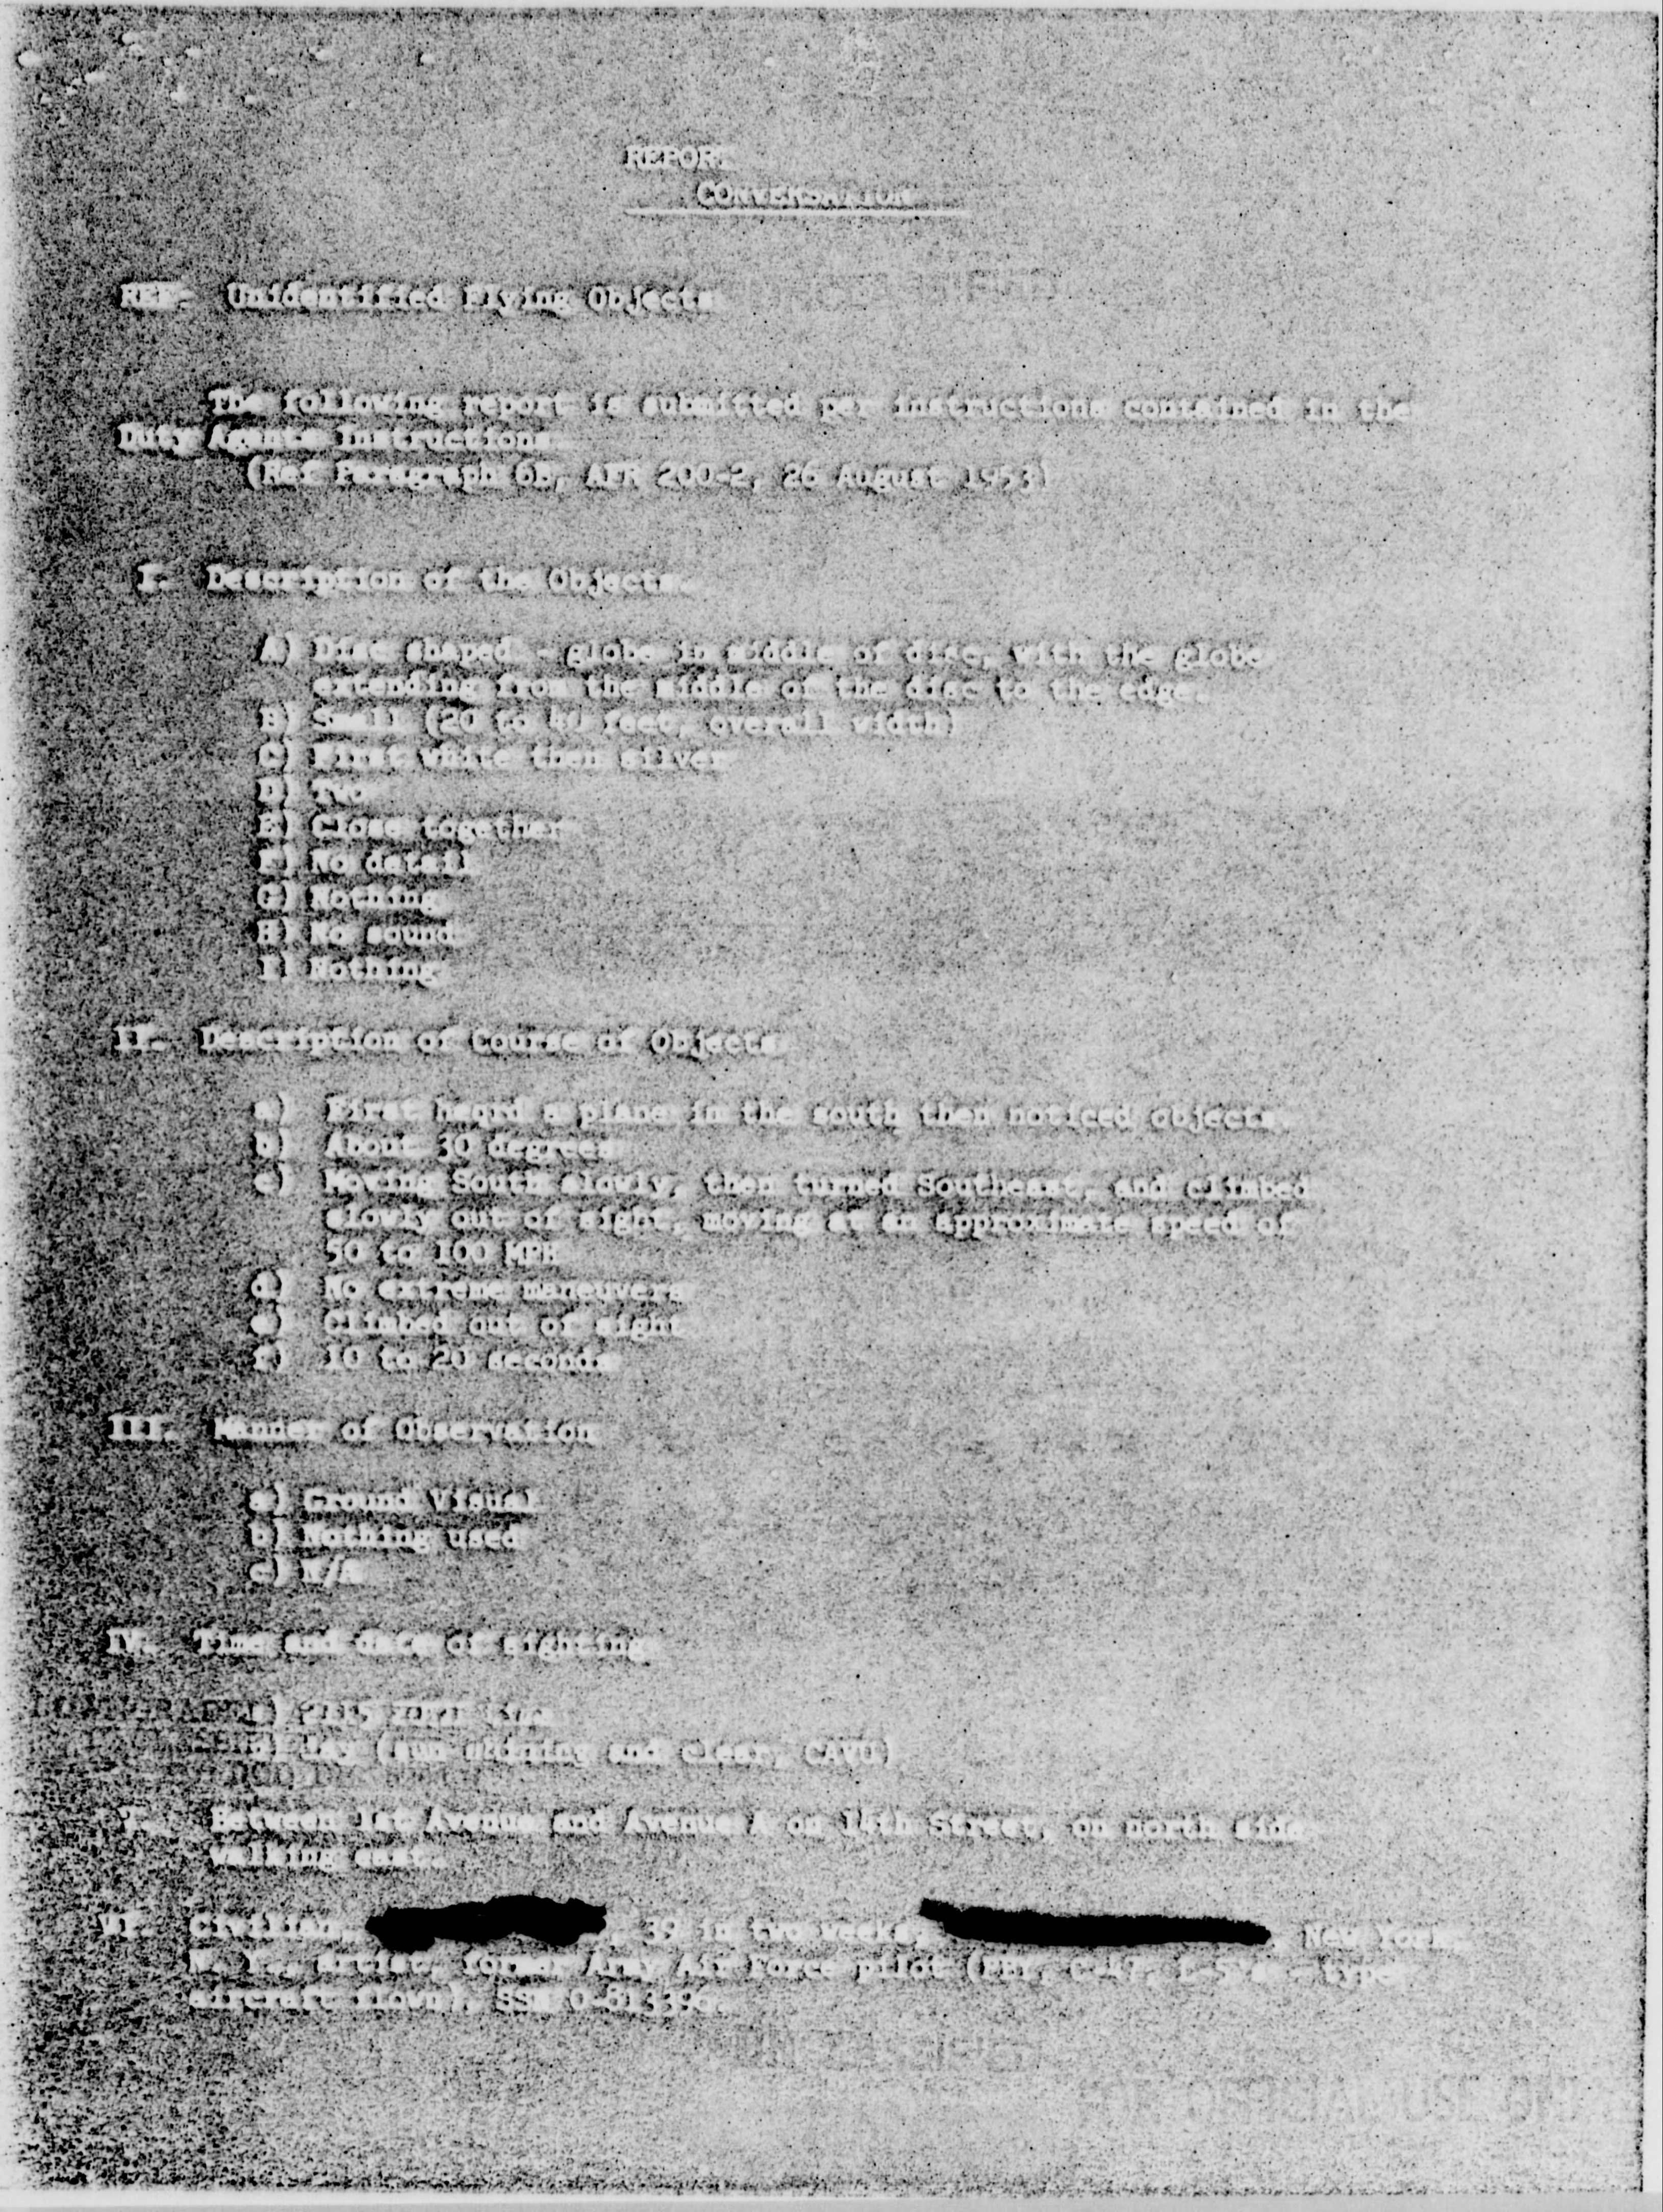 REPORT
CONVERSATION
REF: Unidentified Flying Objects
The following report is submitted per instructions contained in the
Duty Agents Instructions.
(Ref Paragraph 6b, AFR 200-2, 26 August 1953)
I. Description of the Objects.
A) Disc shaped - globe in middle of disc, with the globe
extending from the middle of the disc to the edge.
B) Small (20 to 40 feet, overall width)
C) First white then silver
D) Two
E) Close together
F) No detail
G) Nothing
H) No sound
I) Nothing
II. Description of Course of Objects
a) First heard a plane in the south then noticed objects.
b) About 30 degrees
c) Moving South slowly, then turned Southeast, and climbed
slowly out of sight, moving at an approximate speed of
50 to 100 MPH
d) No extreme maneuvers
e) Climbed out of sight
f) 10 to 20 seconds
III. Manner of Observation
a) Ground Visual
b) Nothing used
c) N/A
IV. Time and date of sighting
a)
Day (sun shining and clear, CAVU)
V. Between 1st Avenue and Avenue A on 14th Street, on north side,
walking east.
VI. Civilian, 39 in two weeks, New York,
N. Y., artist, former Army Air Force pilot type
aircraft flown),